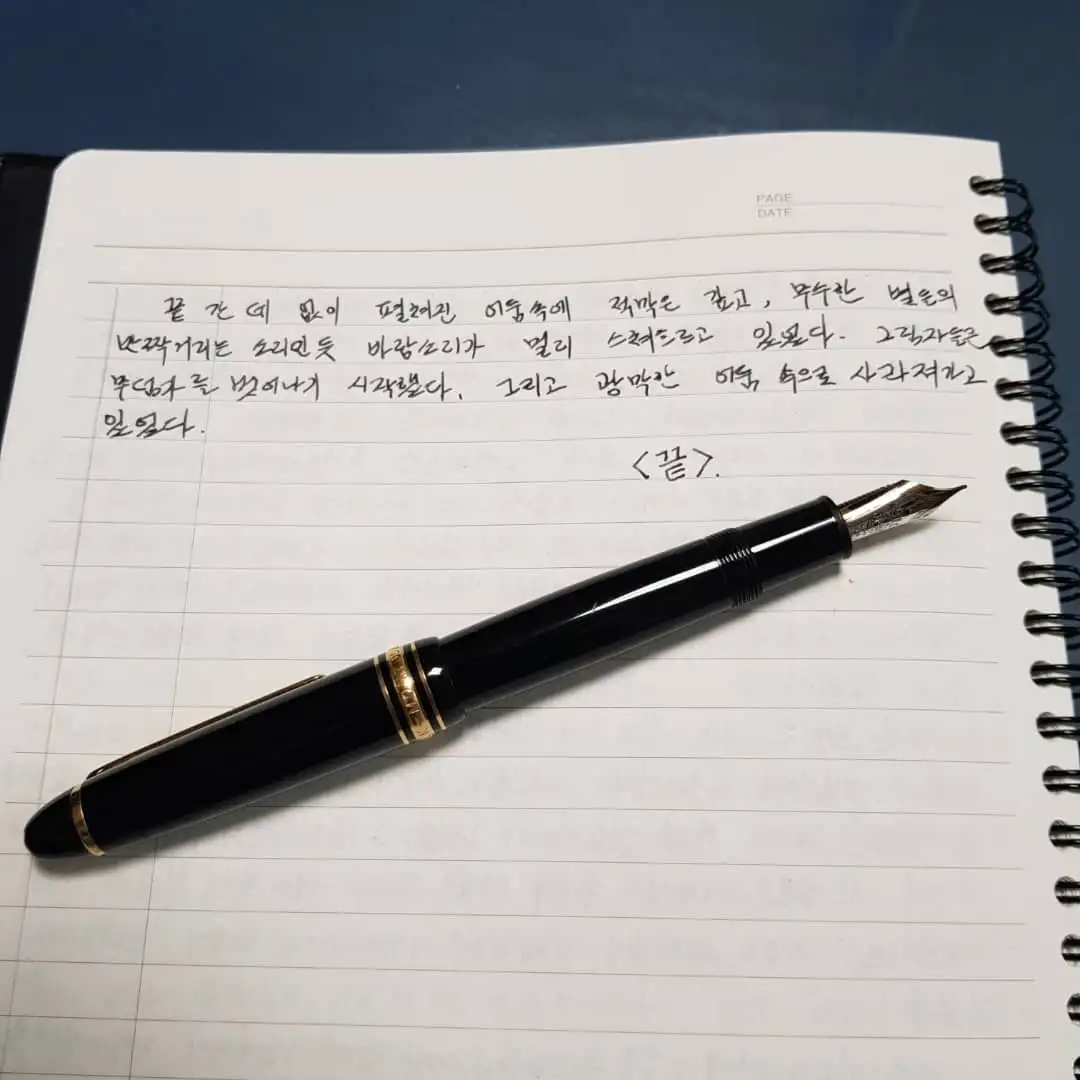 PAGE
DATE
끝 간 데 없이 펼쳐진 어둠속에 적막은 깊고, 무수한 별들의
반짝거리는 소리인 듯 바람소리가 멀리 스쳐흐르고 있었다. 그림자들은
무덤가를 벗어나기 시작했다. 그리고 광막한 어둠 속으로 사라져가고
있었다.
<끝>.